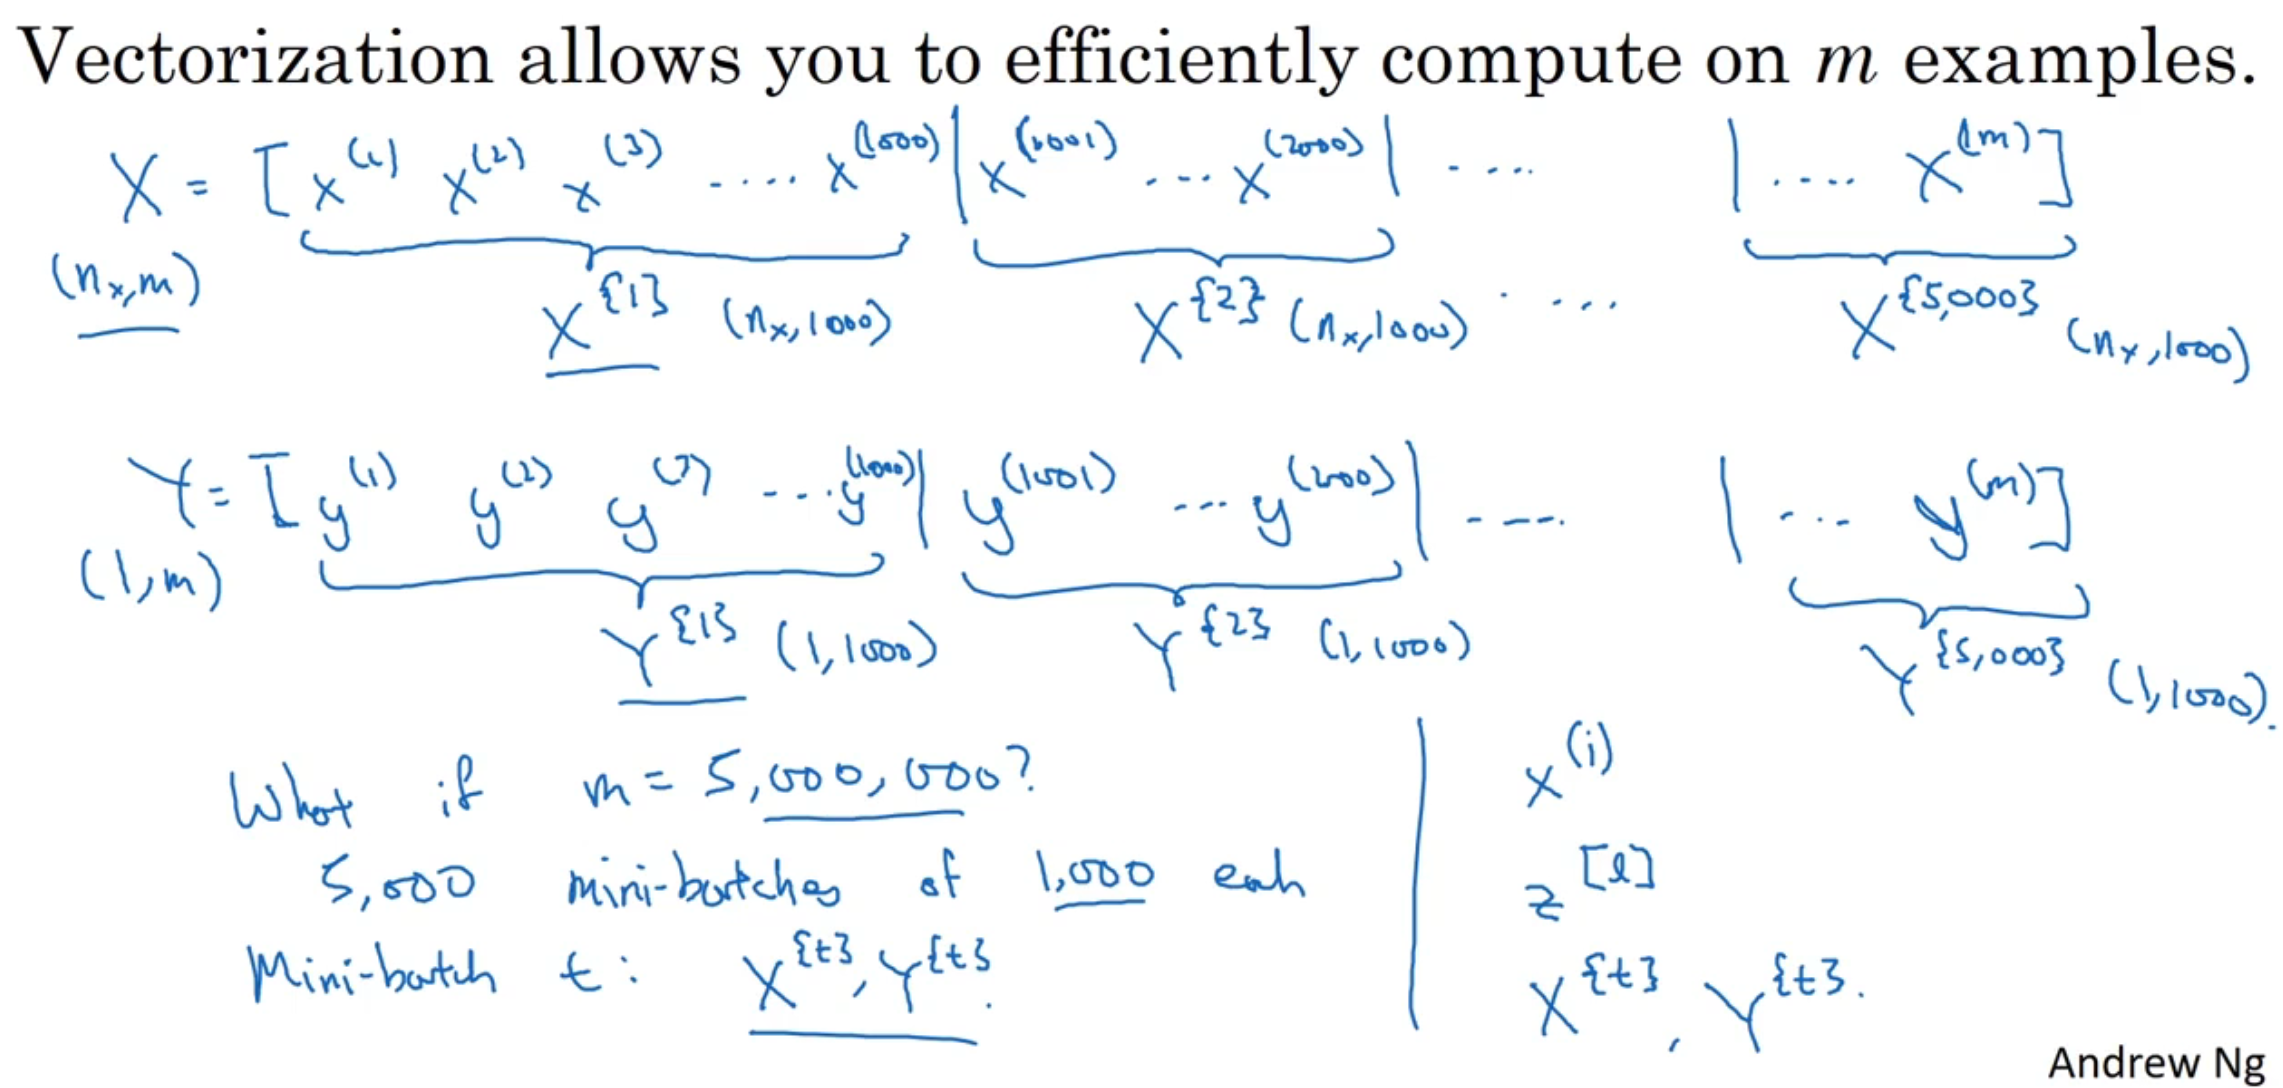 Vectorization allows you to efficiently compute on m examples.
X = [ x^(1) x^(2) x^(3) .... x^(1000) | x^(1001) ... x^(2000) | .... | .... x^(m) ]
(n_x, m)
X^{1} (n_x, 1000) X^{2} (n_x, 1000) .... X^{5,000} (n_x, 1000)
Y = [ y^(1) y^(2) y^(3) ... y^(1000) | y^(1001) ... y^(2000) | .... | ... y^(m) ]
(1, m)
Y^{1} (1, 1000) Y^{2} (1, 1000) Y^{5,000} (1, 1000).
What if m = 5,000,000?
5,000 mini-batches of 1,000 each
Mini-batch t: X^{t}, Y^{t}.
x^(i)
z^[l]
X^{t}, Y^{t}.
Andrew Ng